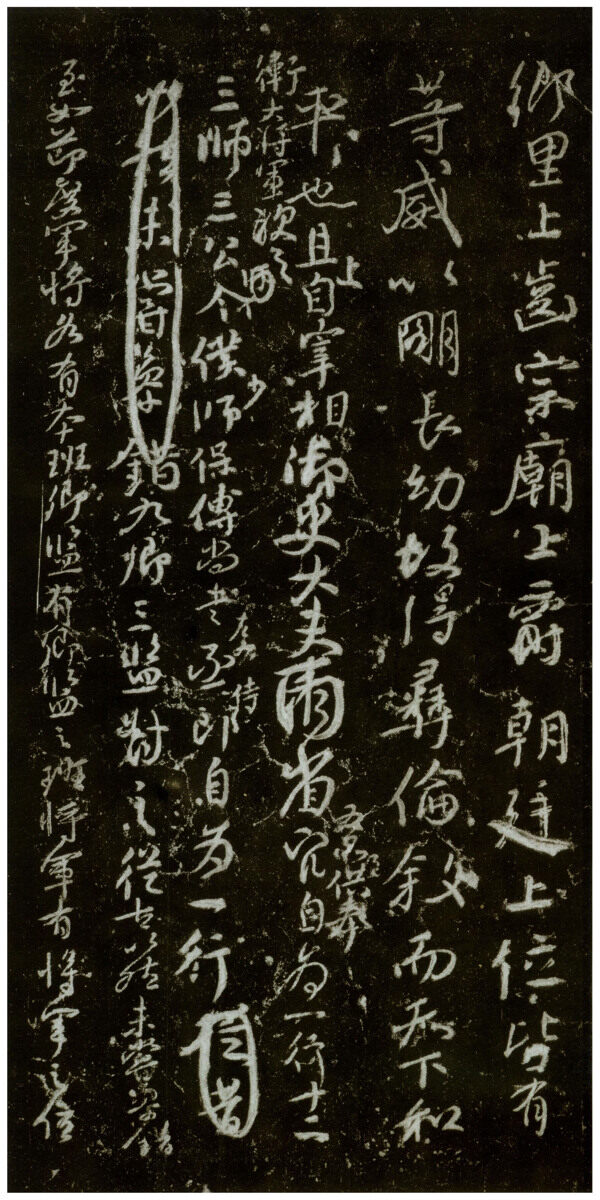 鄉里上齒宗廟上爵朝廷上位皆有
等威以明長幼故得彝倫敘而天下和
平也且上自宰相御史大夫兩省五品供奉官自為一行十二
衛大將軍次之
三師三公令僕少師保傅尚書左右丞侍郎自為一行
未嘗參錯九卿三監對之從古以然未嘗參錯
至如節度軍將各有本班卿監有卿監之班將軍有將軍之位